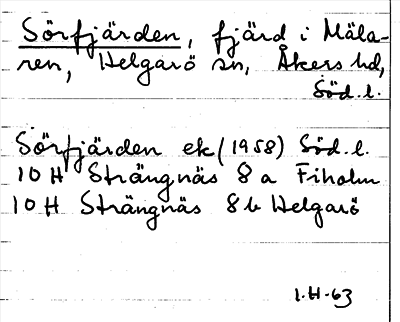 Sörfjärden, fjärd i Mäla-
ren, Helgarö sn, Åkers hd,
Söd.l.
Sörfjärden ek (1958) Söd.l.
10 H Strängnäs 8 a Fiholm
10 H Strängnäs 8 b Helgarö
1.H-63